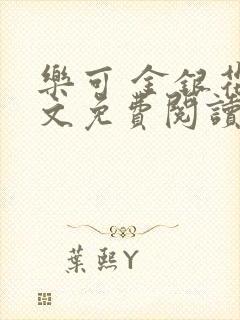 樂可 金銀花
文免費閱讀
葉熙Y